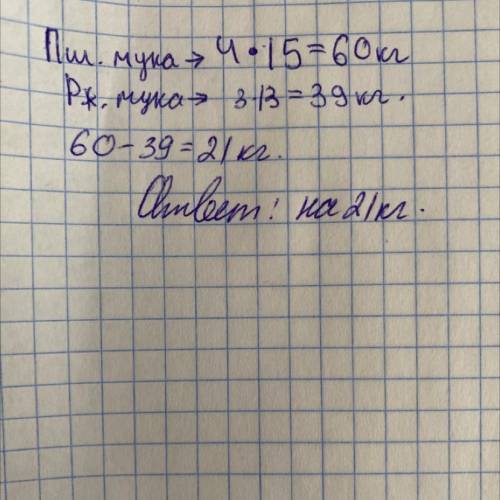 Пш. мука → 4•15=60кг
Рж. мука → 3·13=39кг.
60-39=21кг.
Ответ: на 21кг.